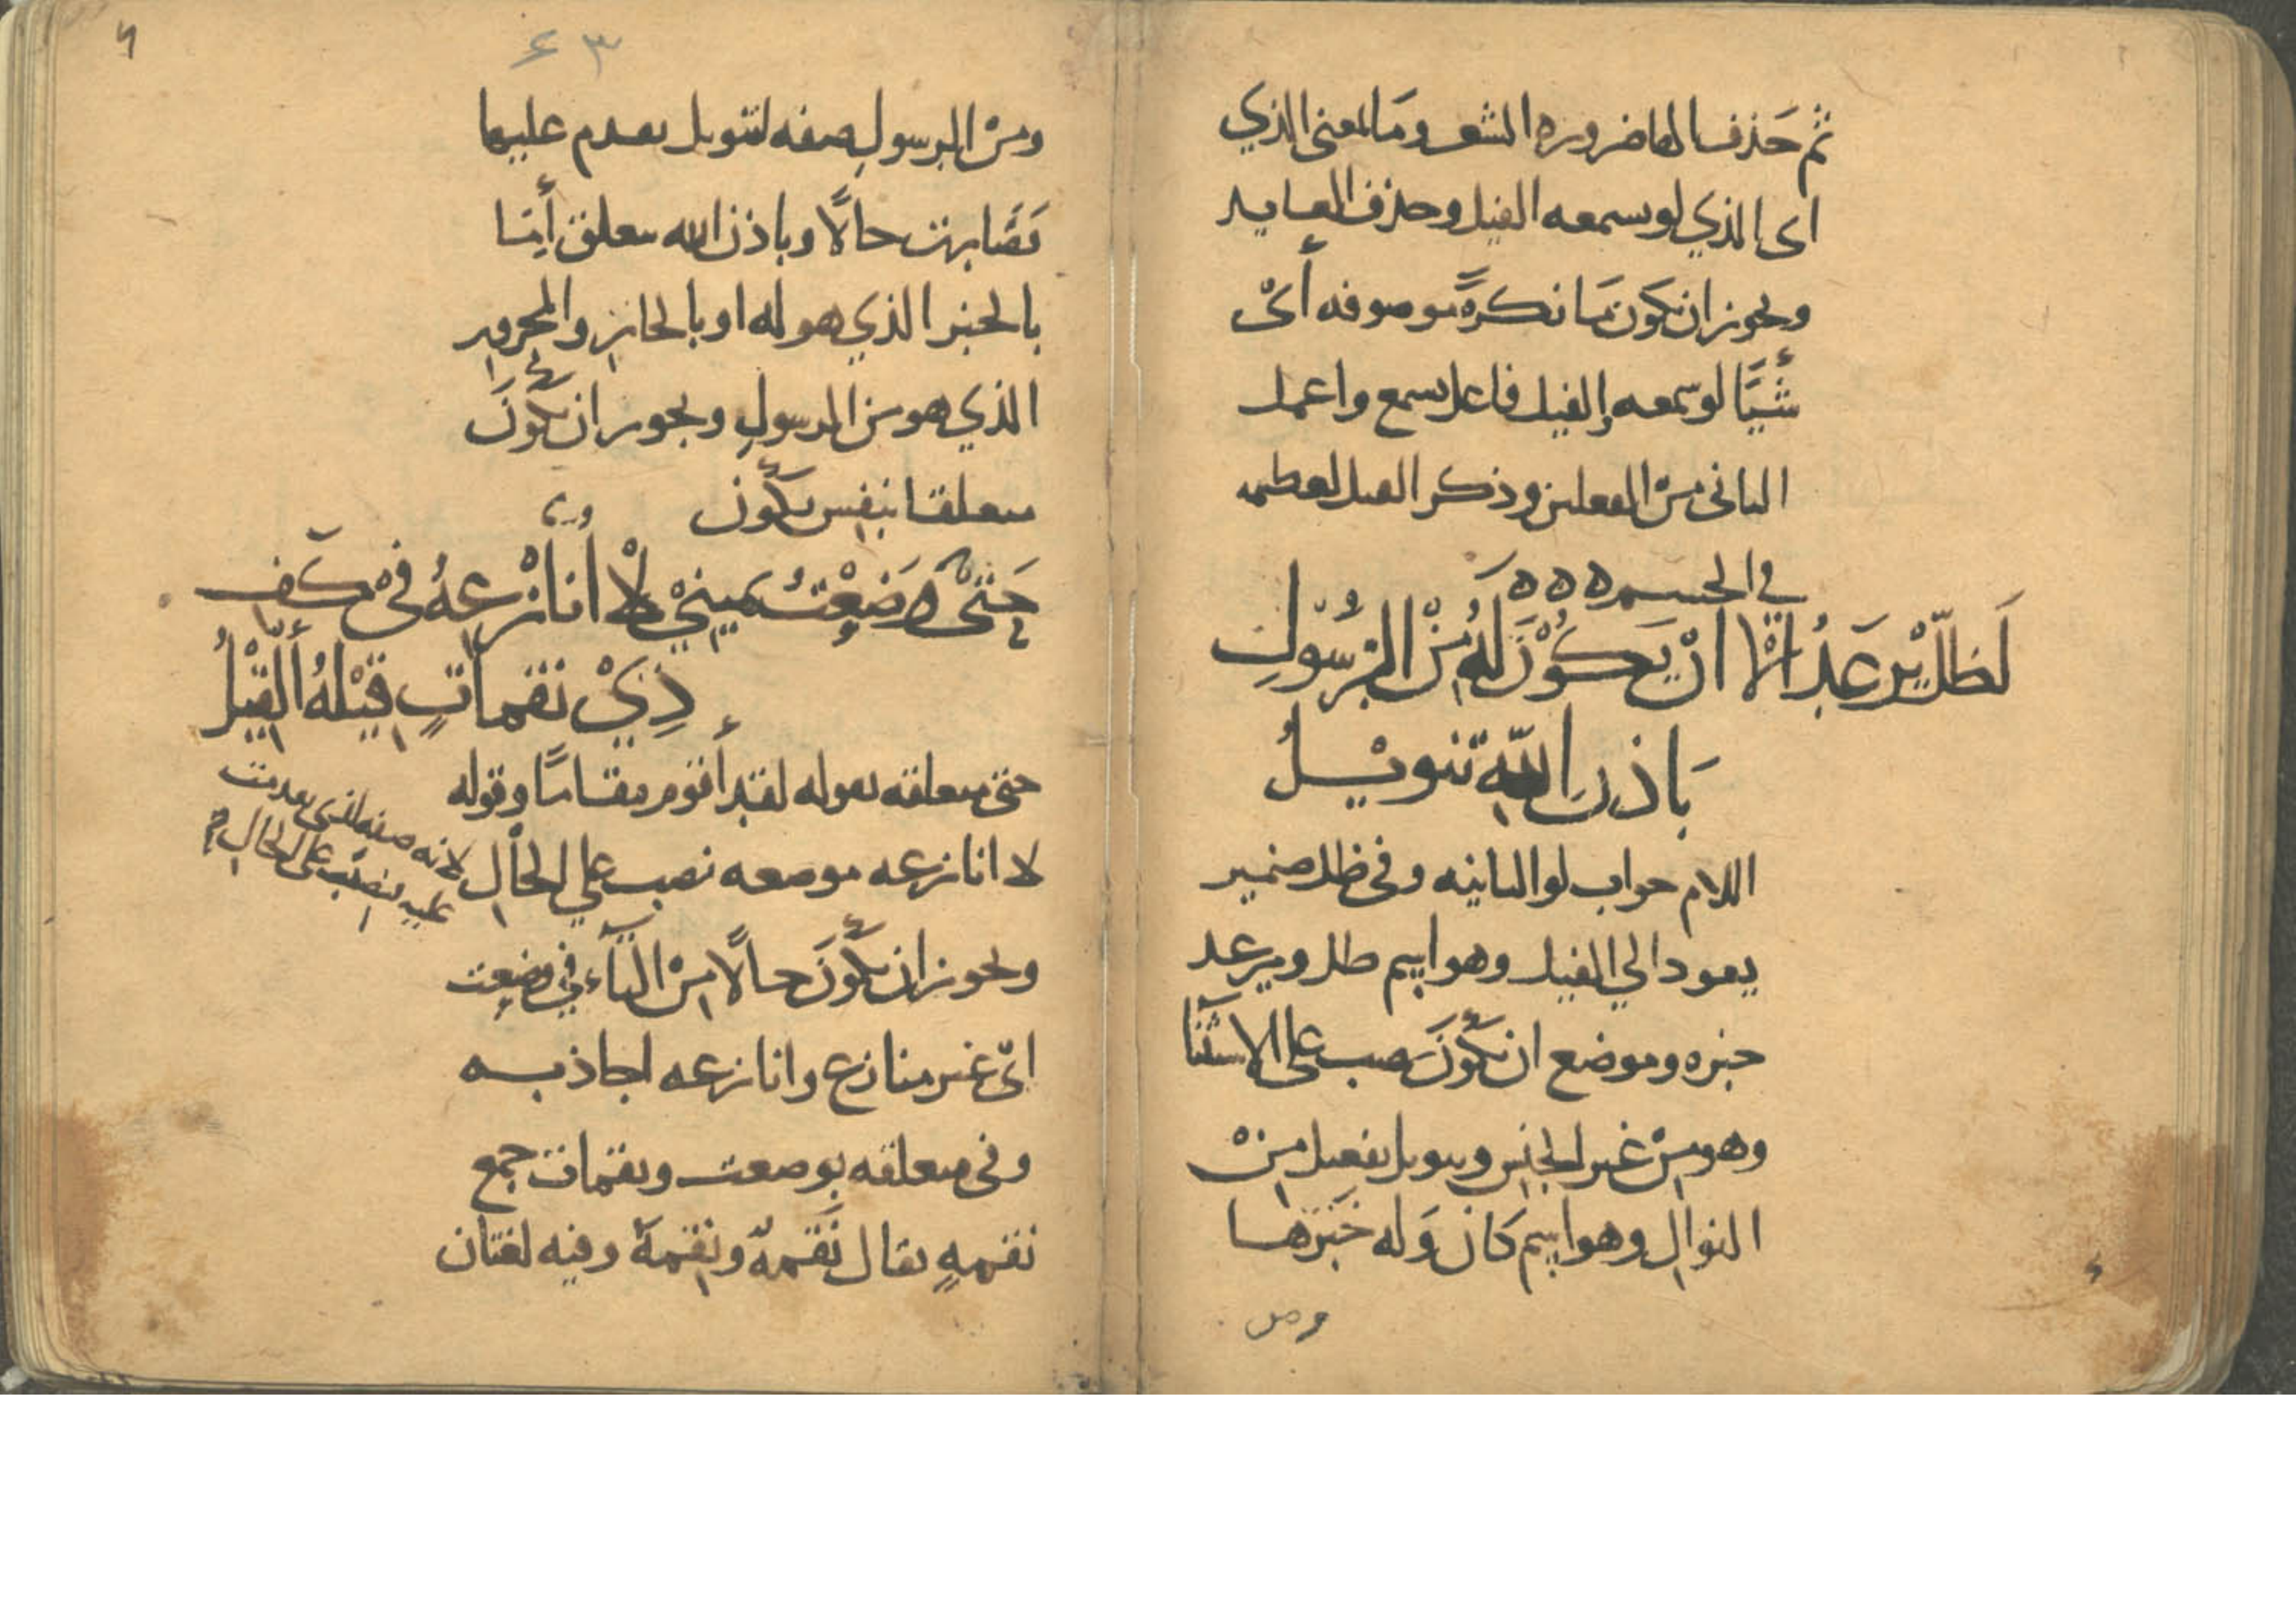 ثم حذف الها ضروره الشعر وما لمعنى الذي
اى الذي لو يسمعه الفيل وحذف العايد
ويجوز ان تكون ما نكرةً موصوفه أىْ
شيًا لو سمعه الفيل فاعل يسمع واعمل
الثانى من الفعلين وذكر الفيل لعظمه
في الجسم ه ه ه
لَظَلَّ يُرعَدُ الا انْ يَكُوْنَ لَهُ مِنْ الرَسُوْلِ
بَاذنِ اللّهِ تنويْلُ
اللام جواب لو الثانيه وفى ظل ضمير
يعود الي الفيل وهو اسم ظل ويرعد
خبره وموضع ان يكُونَ نصب على الاستثنا
وهو مِنْ غير الجنس وتنويل تفعيل مِنْ
النوال وهو اسِم كَان وَله خَبَرها
ومن
٤٣
ومنْ الرسولِ صفه لتنويل تقدم عليها
فَصَارت حالًا وباذن الله متعلق أيضا
بالخبر الذي هو له او بالجار والمجرور
الذي هو من الرسولِ ويجوز ان يكُونَ
متعلقا بنفس يكُون
حَتىْ وَضَعْتُ يَميِنيْ لاْ أُنازْعِهُ فىْ كَفِ
ذِيْ نقماتٍ قِيْلهُ ألْقِيْلُ
حتى متعلقه بقوله لقد أقوم مقامًا وقوله
لا انازعه موضعه نصب علي الحال
لانه صفه لشى تقدمت
عليه فنصبت على الحال
ويجوز ان يكُونَ حالًا مِنْ التآء في وضعت
اىْ غير منازع وانازعه اجاذبه
وفى متعلقه بوضعت ونقمات جمع
نقمهٍ يقال نَقمهٌ ونِقمةٌ وفيه لغتان